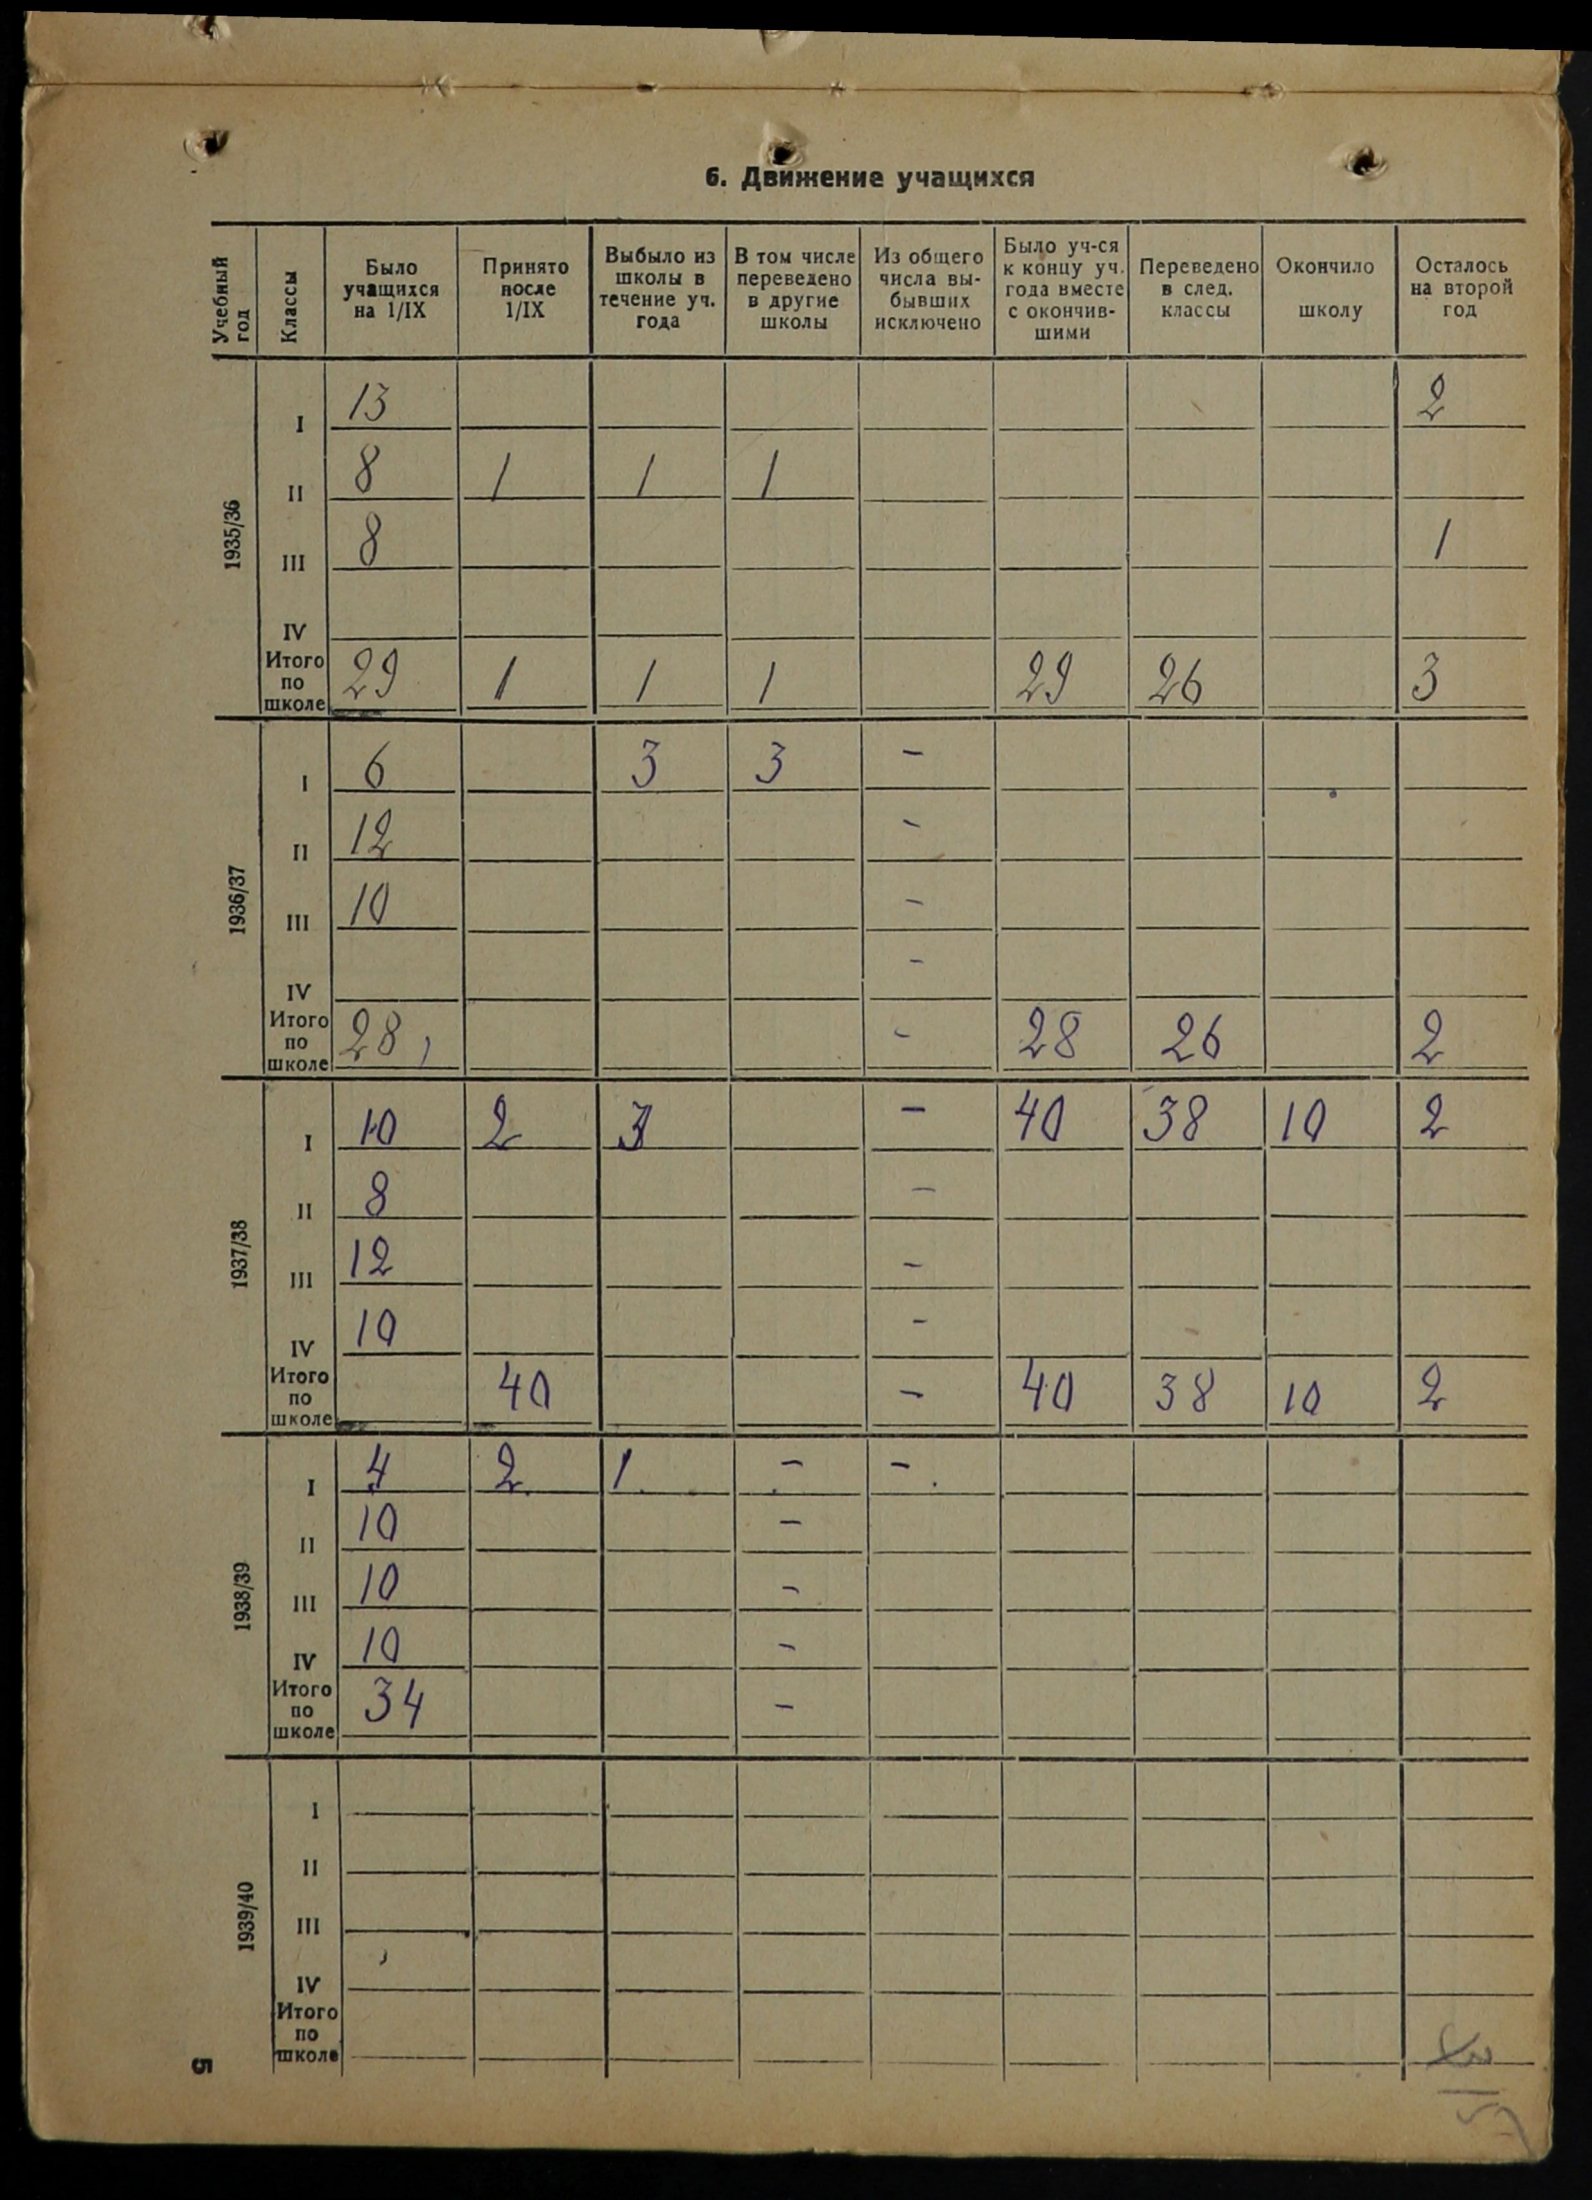 6. Движение учащихся
Учебный год | Классы | Было учащихся на 1/IX | Принято после 1/IX | Выбыло из школы в течение уч. года | В том числе переведено в другие школы | Из общего числа выбывших исключено | Было уч-ся к концу уч. года вместе с окончившими | Переведено в след. классы | Окончило школу | Осталось на второй год
1935/36
I 13 2
II 8 1 1 1
III 8 1
IV
Итого по школе 29 1 1 1 29 26 3
1936/37
I 6 3 3 –
II 12 –
III 10 –
IV –
Итого по школе 28, – 28 26 2
1937/38
I 10 2 3 – 40 38 10 2
II 8 –
III 12 –
IV 10 –
Итого по школе 40 – 40 38 10 2
1938/39
I 4 2. 1. – –.
II 10 –
III 10 –
IV 10 –
Итого по школе 34 –
1939/40
I
II
III
IV
Итого по школе
5